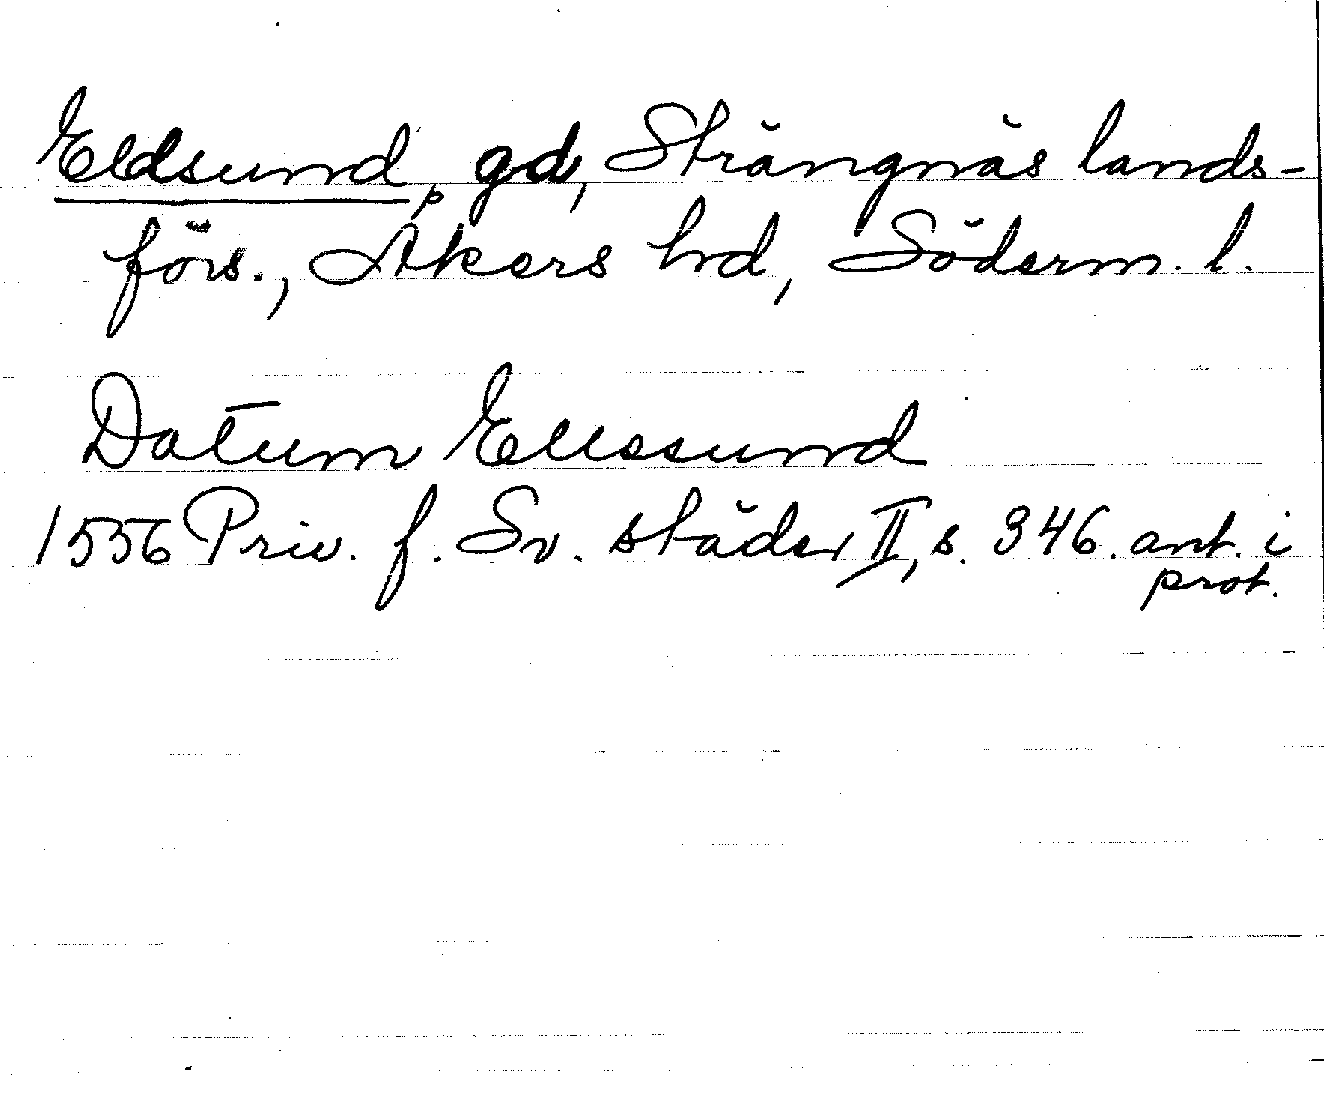 Eldsund, gd, Strängnäs lands-
förs., Åkers hd, Söderm. l.
Datum Ellssund
1556 Priv. f. Sv. städer II, s. 346. ant. i
prot.